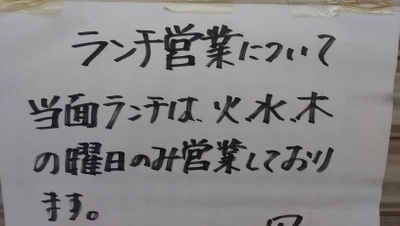 ランチ営業について
当面ランチは、火、水、木
の曜日のみ営業しており
ます。